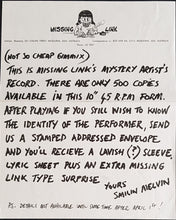 MISSING LINK
(NOT SO CHEAP GIMMIX)
THIS IS MISSING LINK'S MYSTERY ARTIST'S
RECORD. THERE ARE ONLY 500 COPIES
AVAILABLE IN THIS 10" 45 R.P.M FORM.
AFTER PLAYING IF YOU STILL WISH TO KNOW
THE IDENTITY OF THE PERFORMER, SEND
US A STAMPED ADDRESSED ENVELOPE
AND YOU'LL RECIEVE A LAVISH (?) SLEEVE,
LYRIC SHEET PLUS AN EXTRA MISSING
LINK TYPE SURPRISE.
YOURS
SMILIN MELVIN
P.S. DETAILS NOT AVAILABLE UNTIL SOME TIME AFTER APRIL 14!